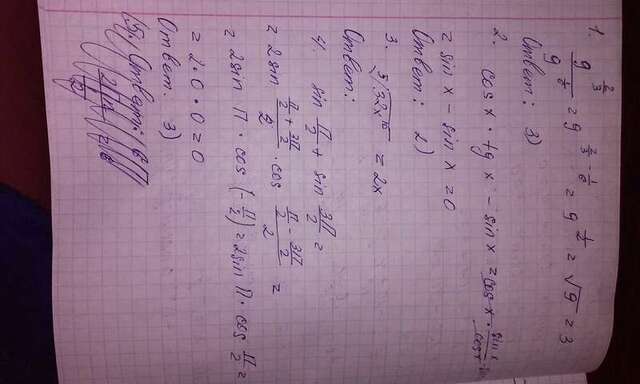 1. 9^(2/3) / 9^(1/6) = 9^(2/3 - 1/6) = 9^(1/2) = √9 = 3
Ответ: 3)
2. cos x · tg x - sin x = cos x · sin x / cos x -
= sin x - sin x = 0
Ответ: 2)
3. ⁵√32x¹⁰ = 2x
Ответ:
4. sin π/2 + sin 3π/2 =
= 2 sin (π/2 + 3π/2)/2 · cos (π/2 - 3π/2)/2 =
= 2 sin π · cos (-π/2) = 2 sin π · cos π/2 =
= 2 · 0 · 0 = 0
Ответ. 3)
5. Ответ: 6π